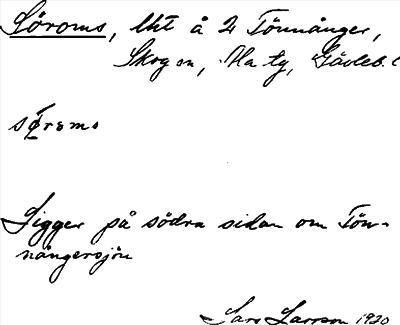 Söroms, Utt å 2 Tönnånger,
Skog sn, Ha tg, Gävleb. l
sørəms
Ligger på södra sidan om Tön-
nångersjön
Lars Larsson 1920